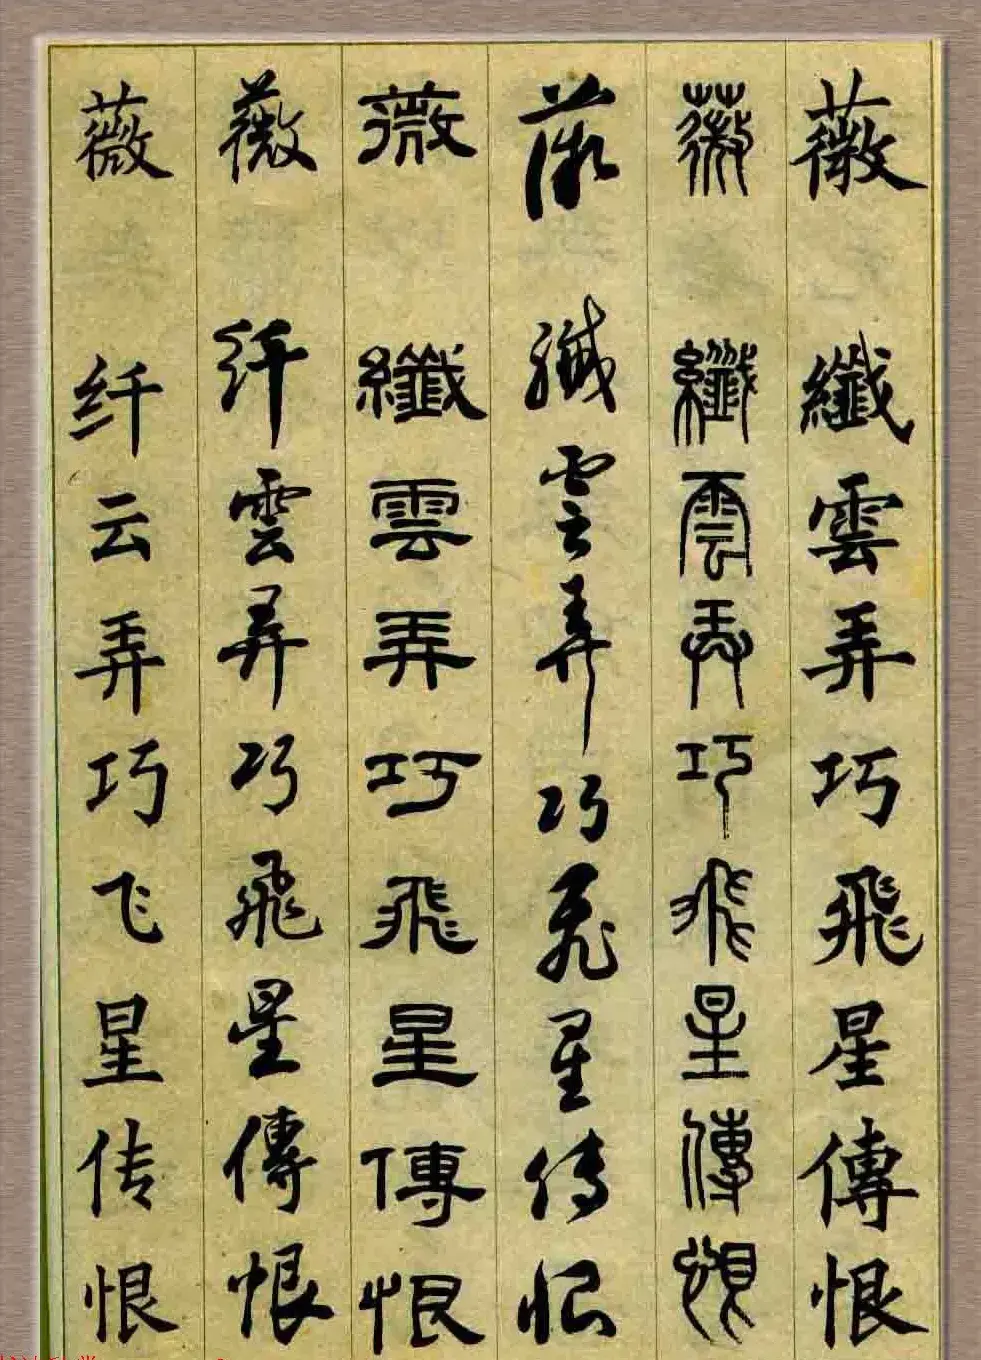 薇 纖雲弄巧飛星傳恨
薇 纖雲弄巧飛星傳恨
薇 纖雲弄巧飛星传恨
薇 纖雲弄巧飛星傳恨
薇 纤雲弄巧飛星傳恨
薇 纤云弄巧飞星传恨